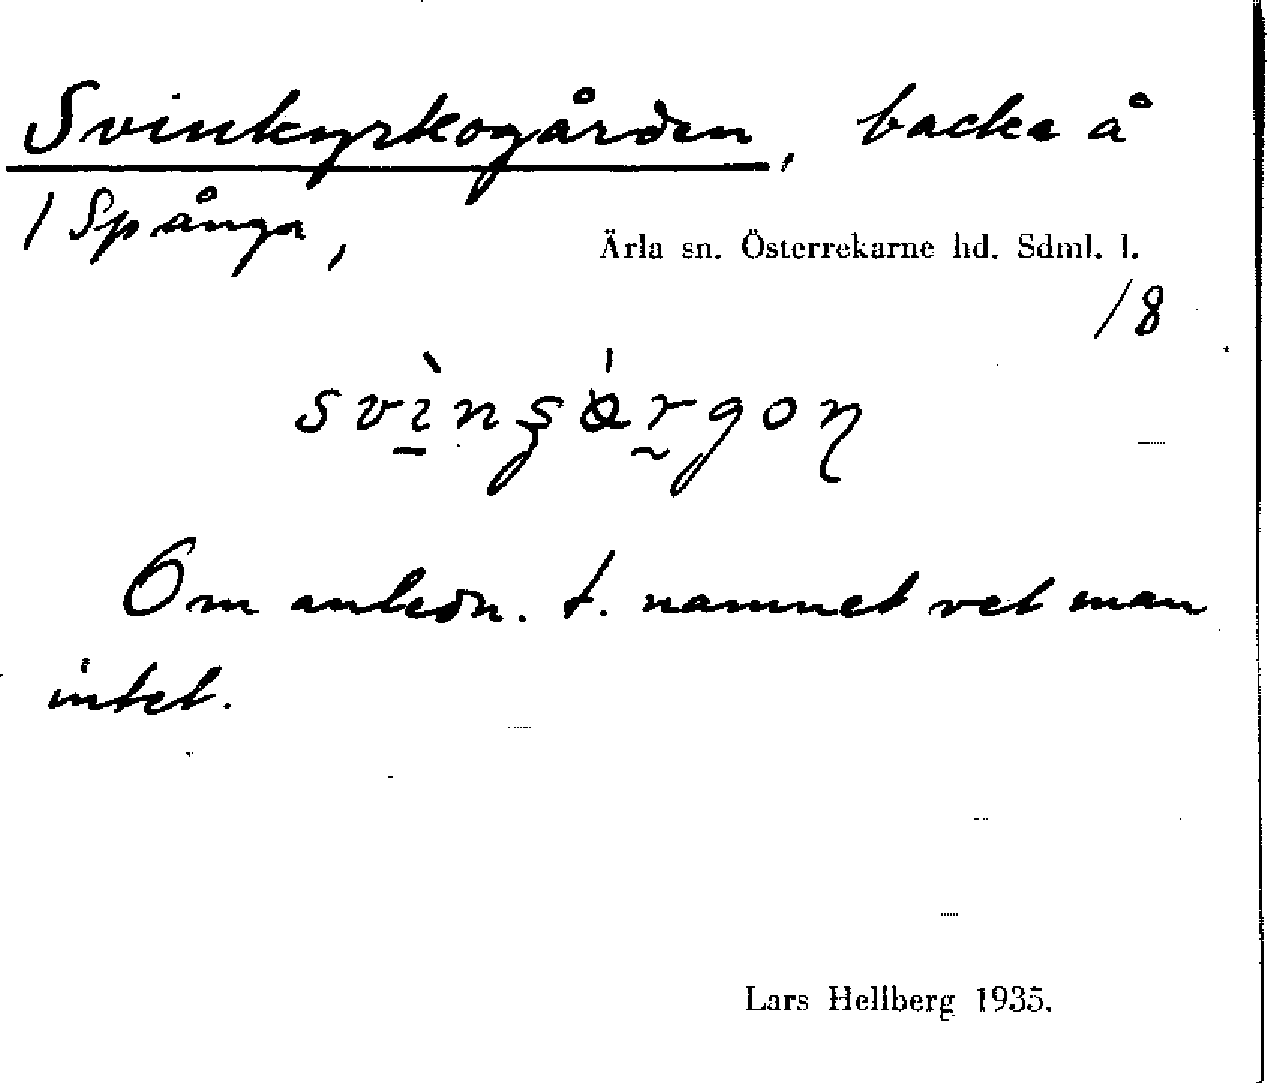 Svinkyrkogården, backe å
/ Spånga,
Ärla sn. Österrekarne hd. Sdml. l.
/8
Om anledn. t. namnet vet man
intet.
Lars Hellberg 1935.